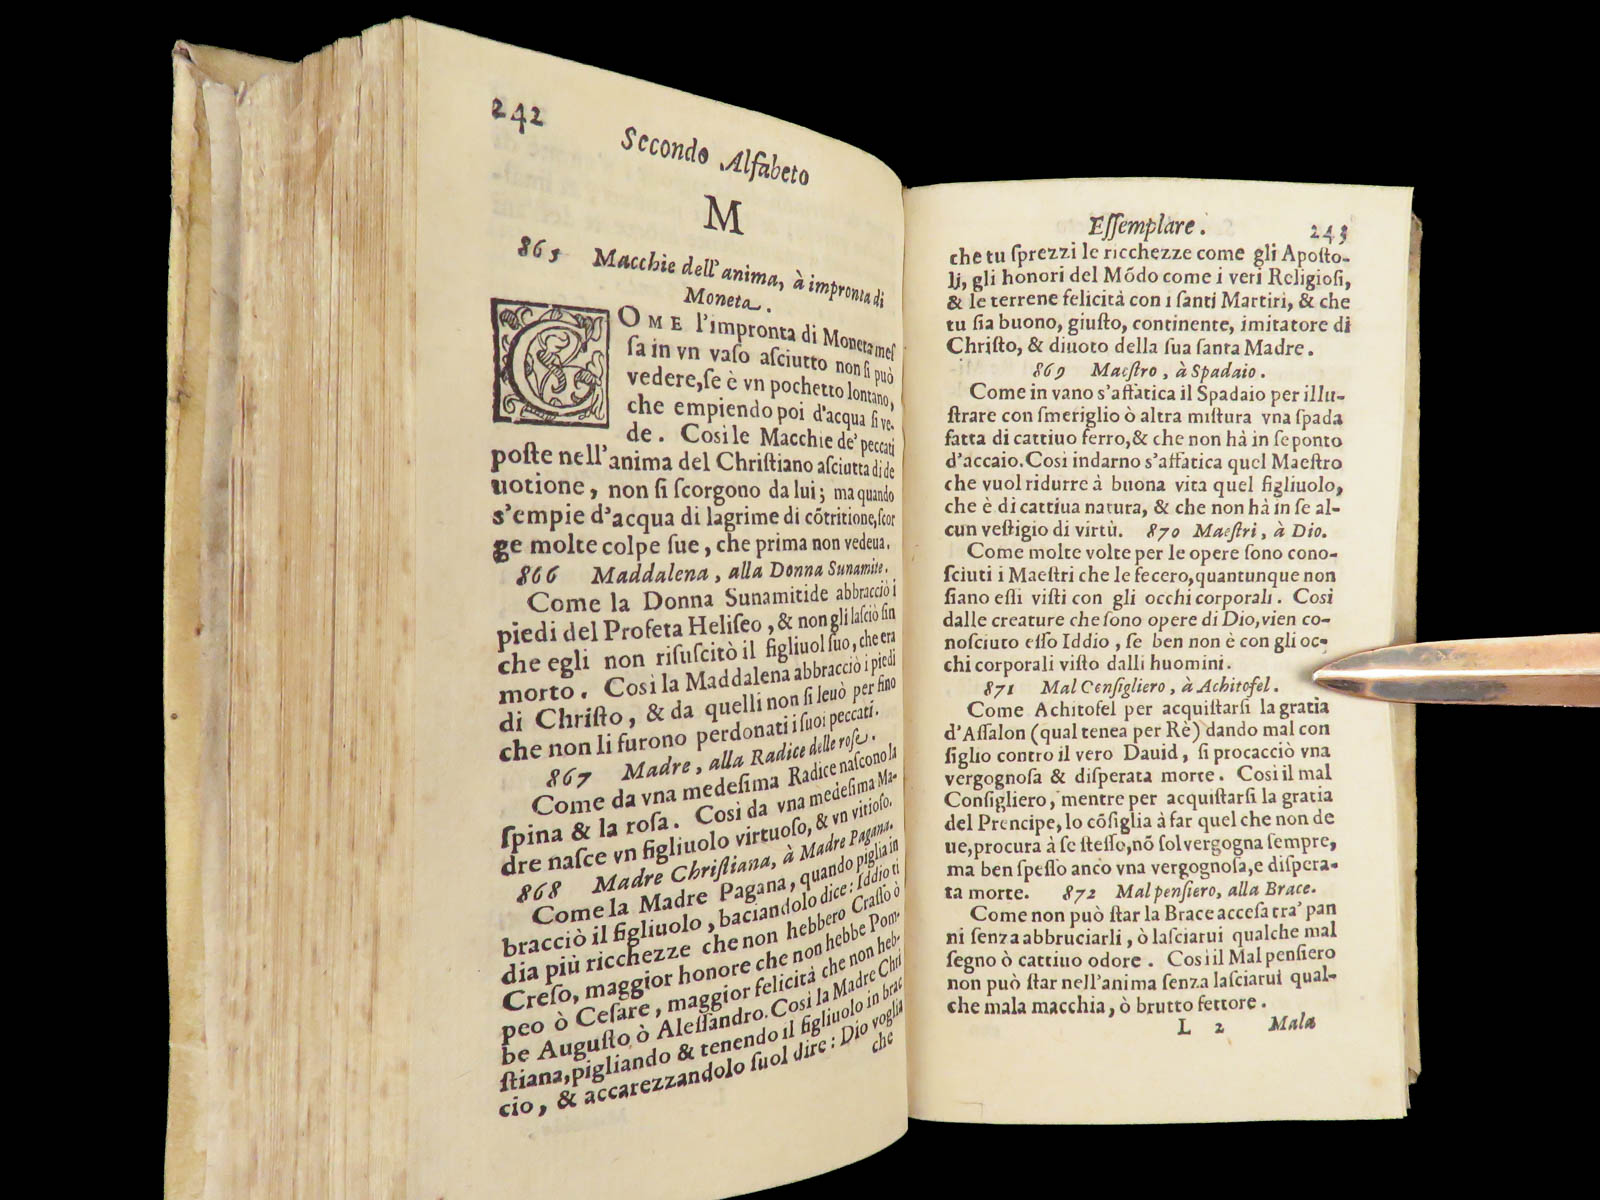 242
Secondo Alfabeto
M
865 Macchie dell'anima, à impronta di
Moneta.
COME l'impronta di Moneta mes
sa in vn vaso asciutto non si può
vedere, se è vn pochetto lontano,
che empiendo poi d'acqua si ve-
de. Cosi le Macchie de' peccati
poste nell'anima del Christiano asciutta di de
uotione, non si scorgono da lui; ma quando
s'empie d'acqua di lagrime di cõtritione, scor
ge molte colpe sue, che prima non vedeua.
866 Maddalena, alla Donna Sunamite.
Come la Donna Sunamitide abbracciò i
piedi del Profeta Heliseo, & non gli lasciò fin
che egli non risuscitò il figliuol suo, che era
morto. Cosi la Maddalena abbracciò i piedi
di Christo, & da quelli non si leuò per fino
che non li furono perdonati i suoi peccati.
867 Madre, alla Radice delle rose.
Come da vna medesima Radice nascono la
spina & la rosa. Così da vna medesima Ma-
dre nasce vn figliuolo virtuoso, & vn vitioso.
868 Madre Christiana, à Madre Pagana.
Come la Madre Pagana, quando piglia in
bracciò il figliuolo, baciandolo dice: Iddio ti
dia più ricchezze che non hebbero Crasso ò
Creso, maggior honore che non hebbe Pom-
peo ò Cesare, maggior felicità che non heb-
be Augusto ò Alessandro. Cosi la Madre Chri
stiana, pigliando & tenendo il figliuolo in brac
cio, & accarezzandolo suol dire: Dio voglia
che
Essemplare. 243
che tu sprezzi le ricchezze come gli Aposto-
li, gli honori del Mõdo come i veri Religiosi,
& le terrene felicità con i santi Martiri, & che
tu sia buono, giusto, continente, imitatore di
Christo, & diuoto della sua santa Madre.
869 Maestro, à Spadaio.
Come in vano s'affatica il Spadaio per illu-
strare con smeriglio ò altra mistura vna spada
fatta di cattiuo ferro, & che non hà in se ponto
d'accaio. Cosi indarno s'affatica quel Maestro
che vuol ridurre à buona vita quel figliuolo,
che è di cattiua natura, & che non hà in se al-
cun vestigio di virtù. 870 Maestri, à Dio.
Come molte volte per le opere sono cono-
sciuti i Maestri che le fecero, quantunque non
siano essi visti con gli occhi corporali. Cosi
dalle creature che sono opere di Dio, vien co-
nosciuto esso Iddio, se ben non è con gli oc-
chi corporali visto dalli huomini.
871 Mal Consigliero, à Achitofel.
Come Achitofel per acquistarsi la gratia
d'Assalon (qual tenea per Rè) dando mal con
siglio contro il vero Dauid, si procacciò vna
vergognosa & disperata morte. Cosi il mal
Consigliero, mentre per acquistarsi la gratia
del Prencipe, lo cõsiglia à far quel che non de
ue, procura à se stesso, nõ sol vergogna sempre,
ma ben spesso anco vna vergognosa, e dispera-
ta morte. 872 Mal pensiero, alla Brace.
Come non può star la Brace accesa tra' pan
ni senza abbruciarli, ò lasciarui qualche mal
segno ò cattiuo odore. Cosi il Mal pensiero
non può star nell'anima senza lasciarui qual-
che mala macchia, ò brutto fettore.
L 2 Mala